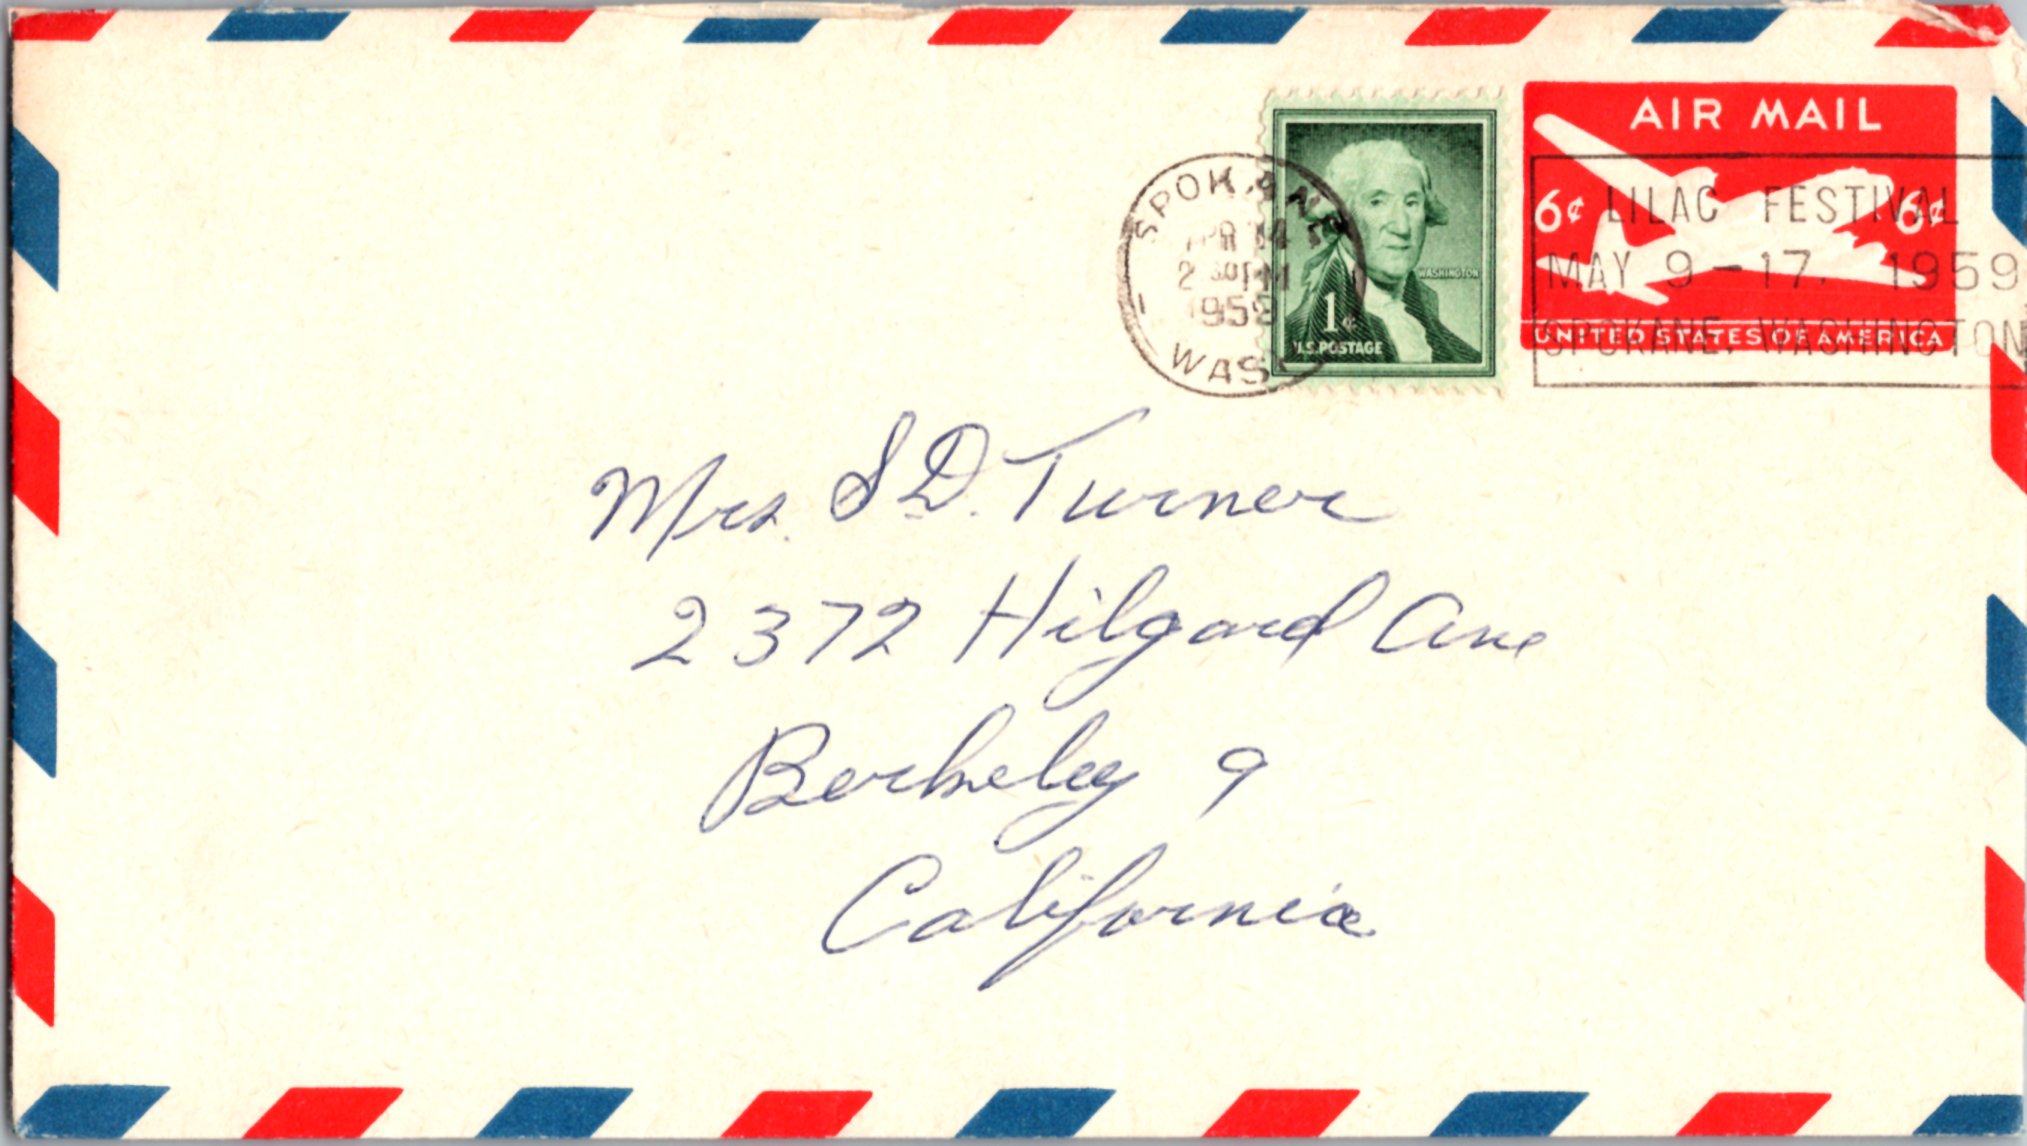 AIR MAIL
6¢ 6¢
UNITED STATES OF AMERICA
WASHINGTON
1¢
U.S. POSTAGE
SPOKANE
APR 14
2 30 PM
WASH
LILAC FESTIVAL
MAY 9 - 17, 1959
SPOKANE, WASHINGTON
Mrs. S.D. Turner
2372 Hilgard Ave
Berkeley 9
California